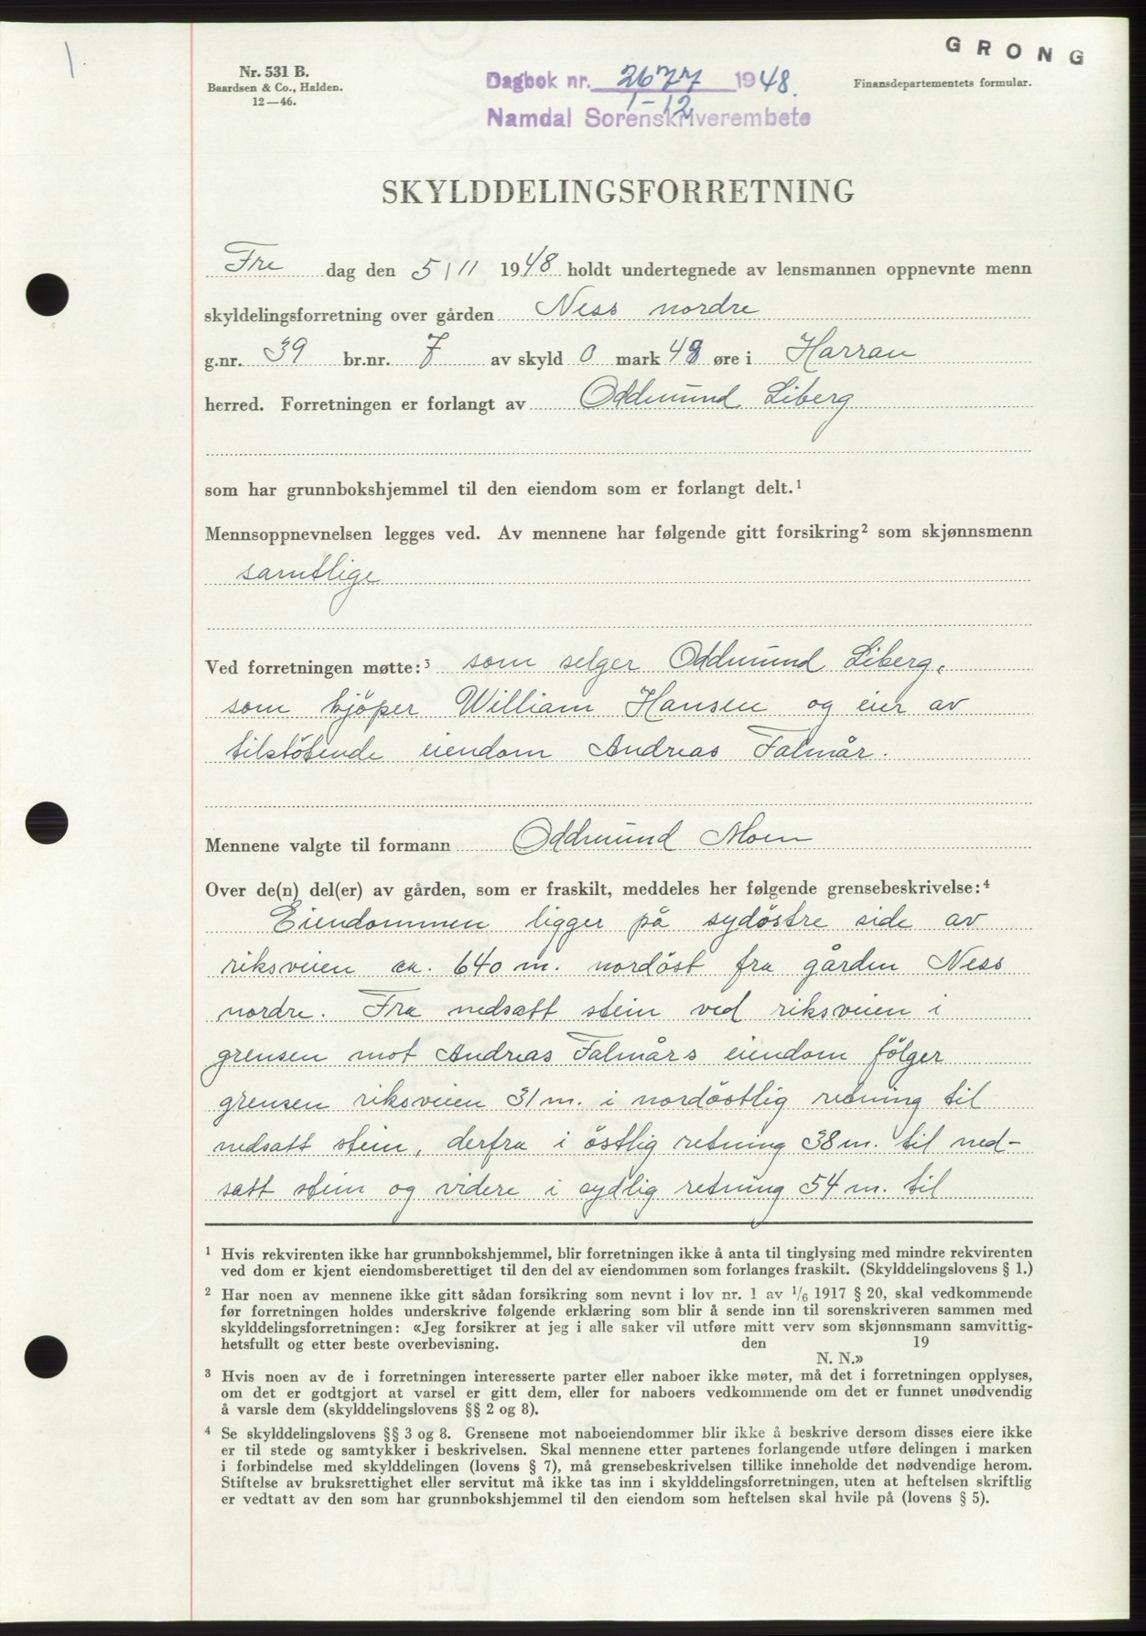 1
GRONG
Nr. 531 B.
Baardsen & Co., Halden.
12—46.
Dagbok nr. 2677 1948.
1-12
Namdal Sorenskriverembete
Finansdepartementets formular.
SKYLDDELINGSFORRETNING
Fre dag den 5/11 1948 holdt undertegnede av lensmannen oppnevnte menn
skyldelingsforretning over gården Ness nordre
g.nr. 39 br.nr. 7 av skyld 0 mark 48 øre i Harran
herred. Forretningen er forlangt av Oddmund Liberg
som har grunnbokshjemmel til den eiendom som er forlangt delt.¹
Mennsoppnevnelsen legges ved. Av mennene har følgende gitt forsikring² som skjønnsmenn
samtlige
Ved forretningen møtte:³ som selger Oddmund Liberg,
som kjöper William Hansen og eier av
tilstötende eiendom Andreas Falmår.
Mennene valgte til formann Oddmund Moen
Over de(n) del(er) av gården, som er fraskilt, meddeles her følgende grensebeskrivelse:⁴
Eiendommen ligger på sydöstre side av
riksveien ca. 640 m. nordöst fra gården Ness
nordre. Fra nedsatt stein ved riksveien i
grensen mot Andreas Falmårs eiendom fölger
grensen riksveien 31 m. i nordöstlig retning til
nedsatt stein, derfra i östlig retning 38 m. til ned-
satt stein og videre i sydlig retning 54 m. til
¹ Hvis rekvirenten ikke har grunnbokshjemmel, blir forretningen ikke å anta til tinglysing med mindre rekvirenten
ved dom er kjent eiendomsberettiget til den del av eiendommen som forlanges fraskilt. (Skylddelingslovens § 1.)
² Har noen av mennene ikke gitt sådan forsikring som nevnt i lov nr. 1 av 1/6 1917 § 20, skal vedkommende
før forretningen holdes underskrive følgende erklæring som blir å sende inn til sorenskriveren sammen med
skylddelingsforretningen: «Jeg forsikrer at jeg i alle saker vil utføre mitt verv som skjønnsmann samvittig-
hetsfullt og etter beste overbevisning. den 19
N. N.»
³ Hvis noen av de i forretningen interesserte parter eller naboer ikke møter, må det i forretningen opplyses,
om det er godtgjort at varsel er gitt dem, eller for naboers vedkommende om det er funnet unødvendig
å varsle dem (skylddelingslovens §§ 2 og 8).
⁴ Se skylddelingslovens §§ 3 og 8. Grensene mot naboeiendommer blir ikke å beskrive dersom disses eiere ikke
er til stede og samtykker i beskrivelsen. Skal mennene etter partenes forlangende utføre delingen i marken
i forbindelse med skylddelingen (lovens § 7), må grensebeskrivelsen tillike inneholde det nødvendige herom.
Stiftelse av bruksrettighet eller servitut må ikke tas inn i skylddelingsforretningen, uten at heftelsen skriftlig
er vedtatt av den som har grunnbokshjemmel til den eiendom som heftelsen skal hvile på (lovens § 5).